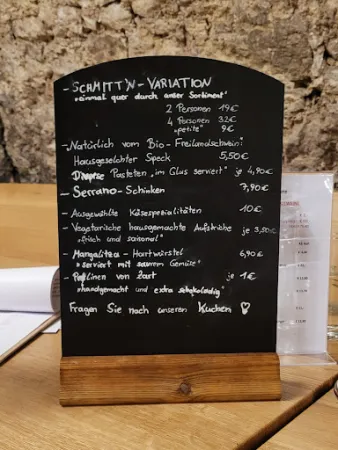 - SCHMITT'N - VARIATION
"einmal quer durch unser Sortiment"
2 Personen 19€
4 Personen 32€
"petite" 9€
- Natürlich vom Bio - Freilandschwein:
Hausgeselchter Speck 5,50€
Diverse Pasteten "im Glas serviert" je 4,90€
- Serrano - Schinken 7,90€
- Ausgewählte Käsespezialitäten 10€
- Vegetarische hausgemachte Aufstriche je 3,50€
"frisch und saisonal"
- Mangalitza - Hartwürstel 6,90€
"serviert mit saurem Gemüse"
- Pralinen von zart je 1€
"handgemacht und extra schokoladig"
Fragen Sie nach unseren Kuchen